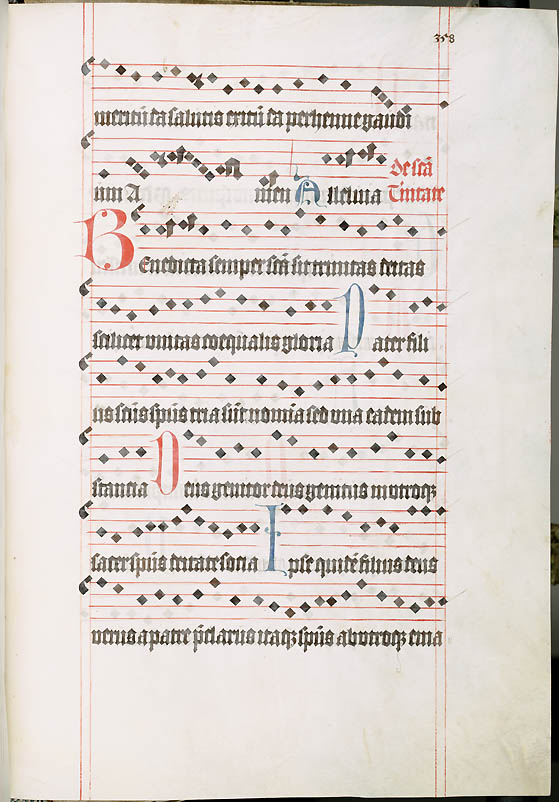 358
meritū da salutis exitū da perhenne gaudi
um A men Alleluia De scā
Trinitate
Benedicta semper scā sit trinitas deitas
scilicet vnitas coequalis gloria Pater fili
us scūs spūs tria sūt nomīa sed vna eadem sub
stancia Deus genitor deus genitus in vtroqꝫ
sacer spūs deitate socia Ipse quidē filius deus
verus a patre p̄clarus itaqꝫ spūs ab vtroqꝫ ema